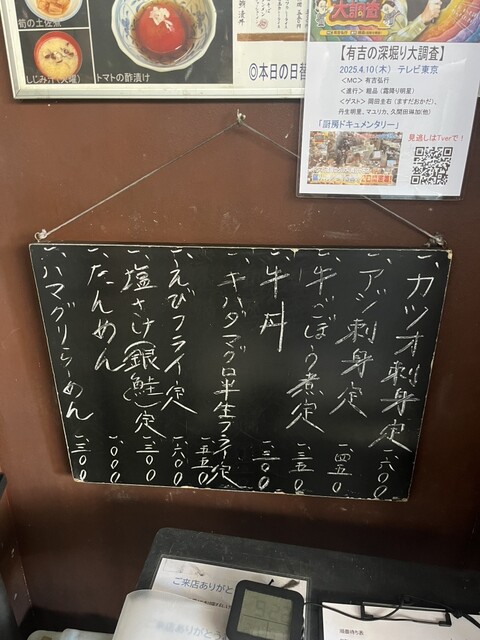 筍の土佐煮
しじみ汁(火曜)
トマトの酢漬け
◎本日の日替
大調査
【有吉の深掘り大調査】
2025.4.10(木) テレビ東京
<MC> 有吉弘行
<進行> 粗品(霜降り明星)
<ゲスト> 岡田圭右(ますだおかだ)、
丹生明里、マユリカ、久間田琳加(他)
「厨房ドキュメンタリー」
見逃しはTverで!
一、カツオ刺身定 一、六〇〇
一、アジ刺身定 一、四五〇
一、牛ごぼう煮定 一、三五〇
一、牛丼 一、三〇〇
一、キハダマグロ半生フライ定 一、五五〇
一、えびフライ定 一、六〇〇
一、塩さけ(銀鮭)定 一、三〇〇
一、たんめん 一、〇〇〇
一、ハマグリらーめん 一、三〇〇
ご来店ありがと